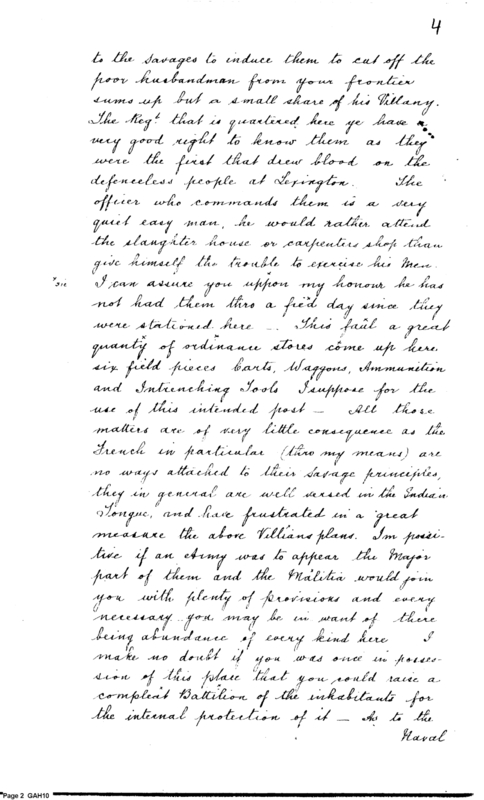 4
to the Savages to induce them to cut off the
poor husbandman from your frontier
sums up but a small share of his Villany.
The Regt. that is quartered here ye have a
very good right to know them as they
were the first that drew blood on the
defenceless people at Lexington. The
officer who commands them is a very
quiet easy man, he would rather attend
the slaughter house or carpenters shop than
give himself the trouble to exercise his Men.
I can assure you uppon my honour he has
not had them thro a field day since they
were stationed here .. This fall a great
quanty of ordinance stores come up here
six field pieces Carts, Waggons, Ammunition
and Intrenching Tools I suppose for the
use of this intended post — All those
matters are of very little consequence as the
French in particular (thro my means) are
no ways attached to their Savage principles,
they in general are well versed in the Indian
Tongue, and have frustrated in a great
measure the above Villians plans. I'm possi-
tive if an Army was to appear the Major
part of them and the Malitia would join
you with plenty of Provisions and every
necessary you may be in want of there
being abundance of every kind here I
make no doubt if you was once in posses-
sion of this place that you could raise a
compleat Battition of the inhabitants for
the internal protection of it — As to the
Naval
Page 2 GAH10